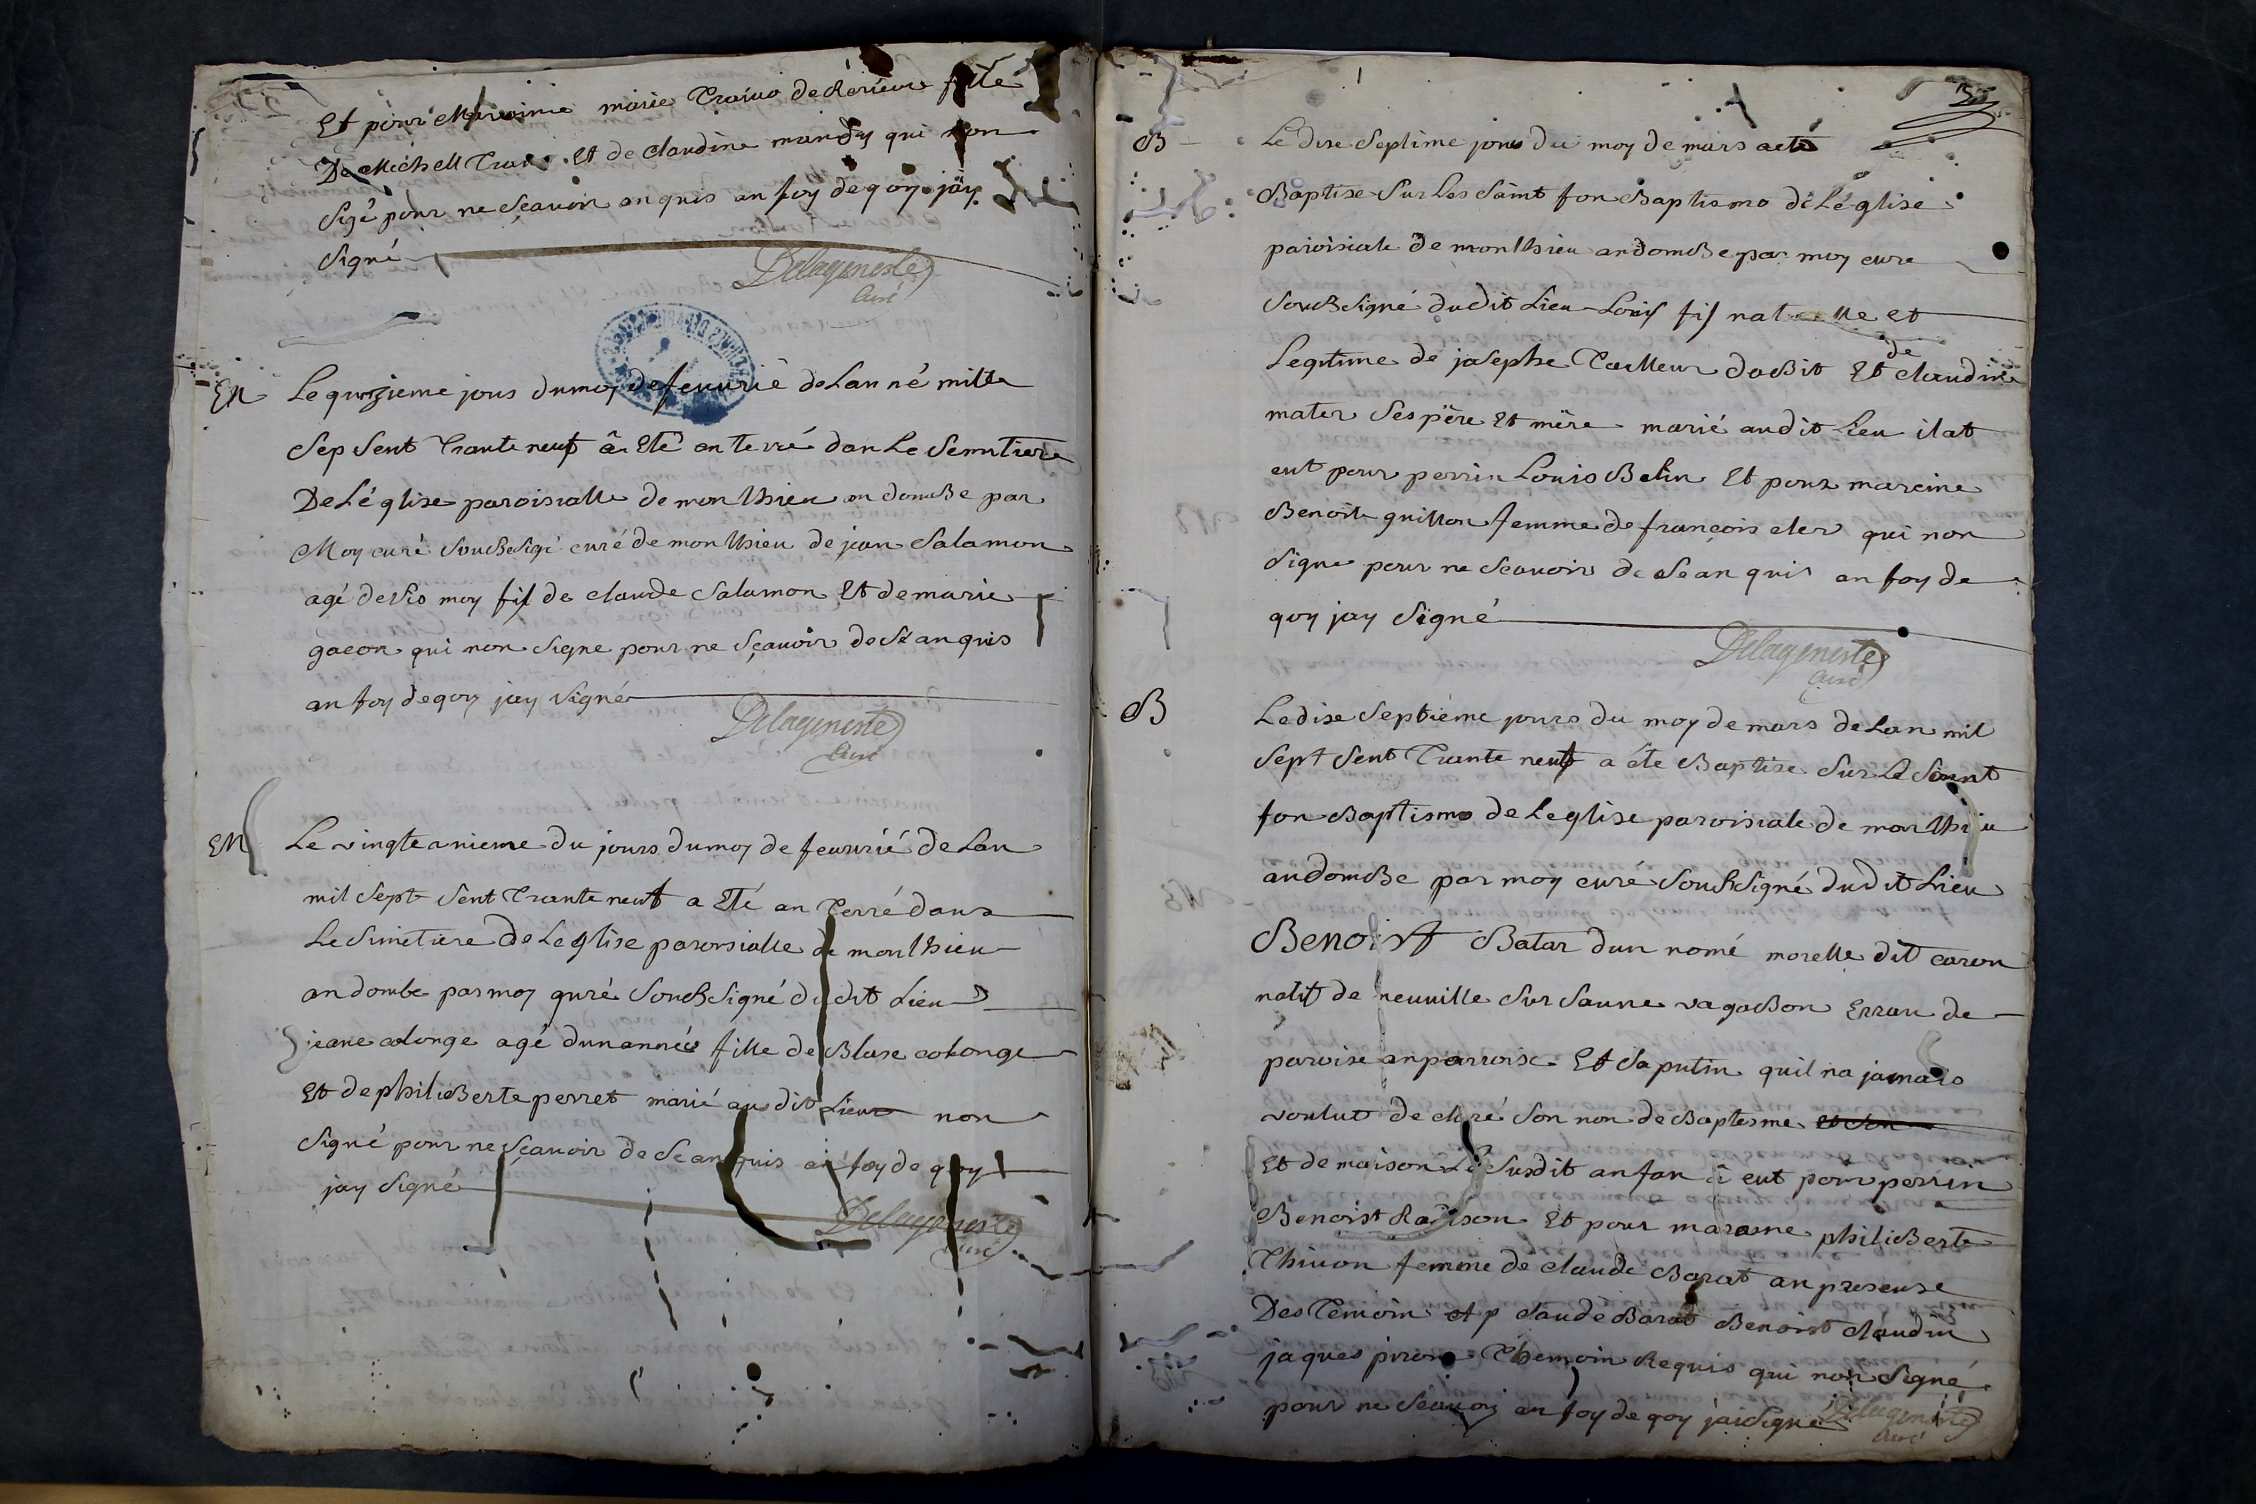 Et pour Maraine marie Traiuo de Rerieu fille
De Michell Trauo Et de claudine mandy qui non
Signé pour ne sçauoir anquis an foy de qoy jay
Signé
Delageneste
Curé
EN
Le quinzieme jours du moy de feuurié de Lan né mille
Sep Sent Trante neuf â Eté anterré dan Le Semitiere
De L'église paroisialle de monthieu an dombe par
Moy curé soubsigé curé de monthieu de jean Salamon
agé de sis moy fis de claude Salamon Et de marie
gacon qui non signe pour ne sçauoir de sé anquis
an foy de qoy jay signé
Delageneste
Curé
EN
Le vingte anieme du jours du moy de feuurié de Lan
mil sept sent Trante neuf a Eté an Terré dans
Le Simetiere De Leglise paroisialle de monthieu
an dombe par moy quré soubsigné dudit Lieu
jeane colonge agé dun anneé fille de Blase colonge
Et de philiberte perret marié au dit Lieu non
Signé pour ne sçauoir de se anquis an foy de qoy
jay signé
Delageneste
Curé
B
Le dise septime jour du moy de mars aeté
Baptise sur Les saint fon Baptismo de L'église
paroisiale de monthieu andombe par moy cure
soubsigné dudit Lieu Louis fis nat elle et
Legitime de josephe Tailleur dobit Et de claudine
mater ses père Et mère marié audit Lieu ilat
eut pour perrin Louis Belin Et pour mareine
Benoite guillon femme de françois cler qui non
signe pour ne sçauoir de se anquis an foy de
qoy jay signé
Delageneste
Curé
B
Le dise septiéme jours du moy de mars de Lan mil
sept sent Trante neuf a éte Baptise sur Le saint
fon Baptismo de Leglise paroisiale de monthieu
andombe par moy curé soubsigné dudit Lieu
Benoist Batar dun nomé morelle dit caron
natif de neuuille sur saune vagabon Erran de
paroise anparroise Et sa putin quil na jamais
voulut de claré son non de Baptesme et son
Et de maison Le susdit anfan à eut pour perrin
Benoist Raïson Et pour maraine philiberte
Thiuon femme de claude Barat an presense
Des Temoin claude Barat Benoist claudin
jaques piron Themoin Requis qui non signé
pour ne sçauoy an foy de qoy jai signé Delageneste
Curé